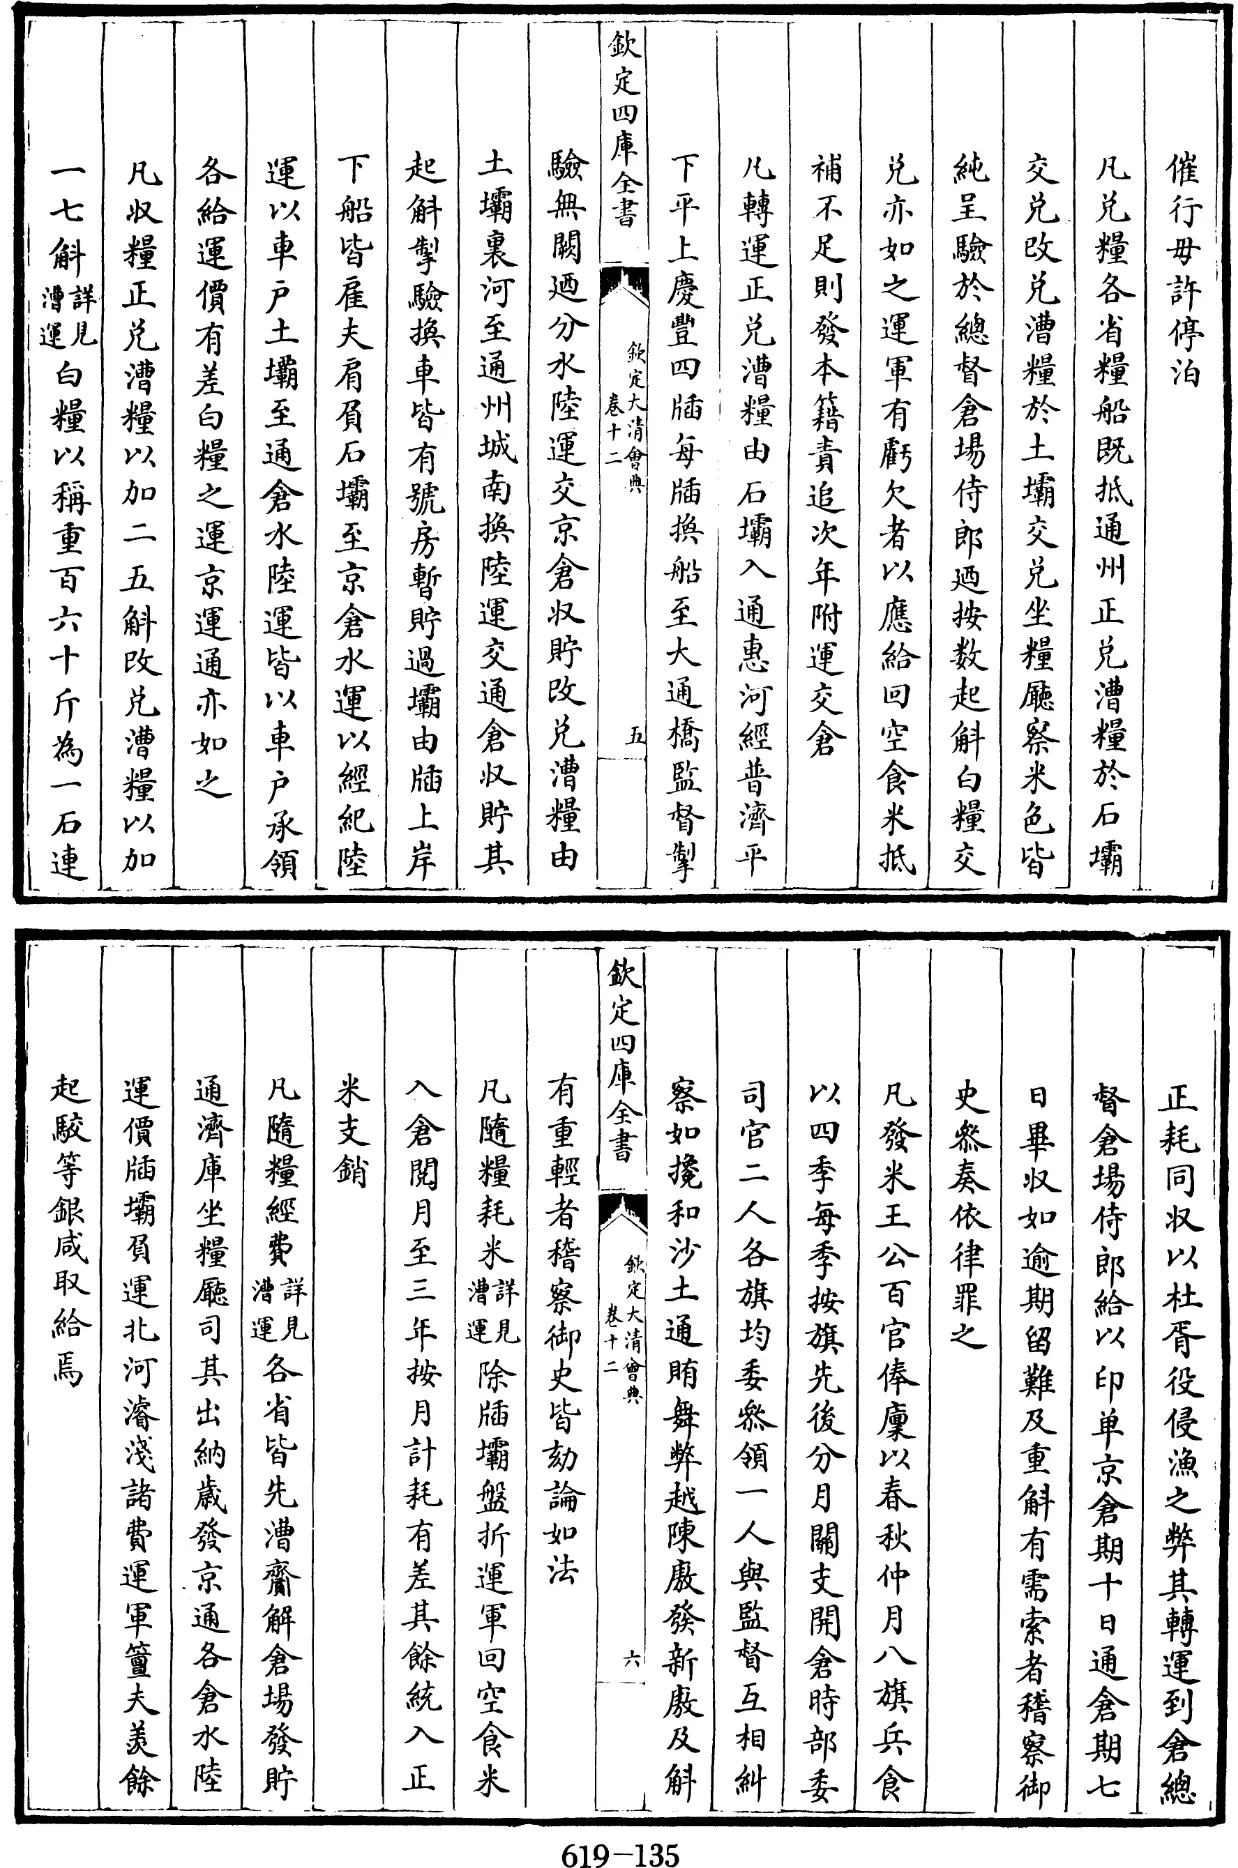 催行毋許停泊
凡兌糧各省糧船既抵通州正兌漕糧於石壩
交兌改兌漕糧於土壩交兌坐糧廳察米色皆
純呈驗於總督倉場侍郎廼按數起斛白糧交
兌亦如之運軍有虧欠者以應給回空食米抵
補不足則發本籍責追次年附運交倉
凡轉運正兌漕糧由石壩入通惠河經普濟平
下平上慶豐四牐每牐換船至大通橋監督掣
欽定四庫全書
欽定大清會典
卷十二
五
驗無闕廼分水陸運交京倉收貯改兌漕糧由
土壩裏河至通州城南換陸運交通倉收貯其
起斛掣驗換車皆有號房暫貯過壩由牐上岸
下船皆雇夫肩負石壩至京倉水運以經紀陸
運以車戶土壩至通倉水陸運皆以車戶承領
各給運價有差白糧之運京運通亦如之
凡收糧正兌漕糧以加二五斛改兌漕糧以加
一七斛詳見漕運白糧以稱重百六十斤為一石連
正耗同收以杜胥役侵漁之弊其轉運到倉總
督倉場侍郎給以印单京倉期十日通倉期七
日畢收如逾期留難及重斛有需索者稽察御
史叅奏依律罪之
凡發米王公百官俸廩以春秋仲月八旗兵食
以四季每季按旗先後分月關支開倉時部委
司官二人各旗均委叅領一人與監督互相糾
察如攙和沙土通賄舞弊越陳廒發新廒及斛
欽定四庫全書
欽定大清會典
卷十二
六
有重輕者稽察御史皆劾論如法
凡隨糧耗米詳見漕運除牐壩盤折運軍回空食米
入倉閱月至三年按月計耗有差其餘統入正
米支銷
凡隨糧經費詳見漕運各省皆先漕齎解倉場發貯
通濟庫坐糧廳司其出納歲發京通各倉水陸
運價牐壩負運北河濬淺諸費運軍簹夫羨餘
起駁等銀咸取給焉
619-135